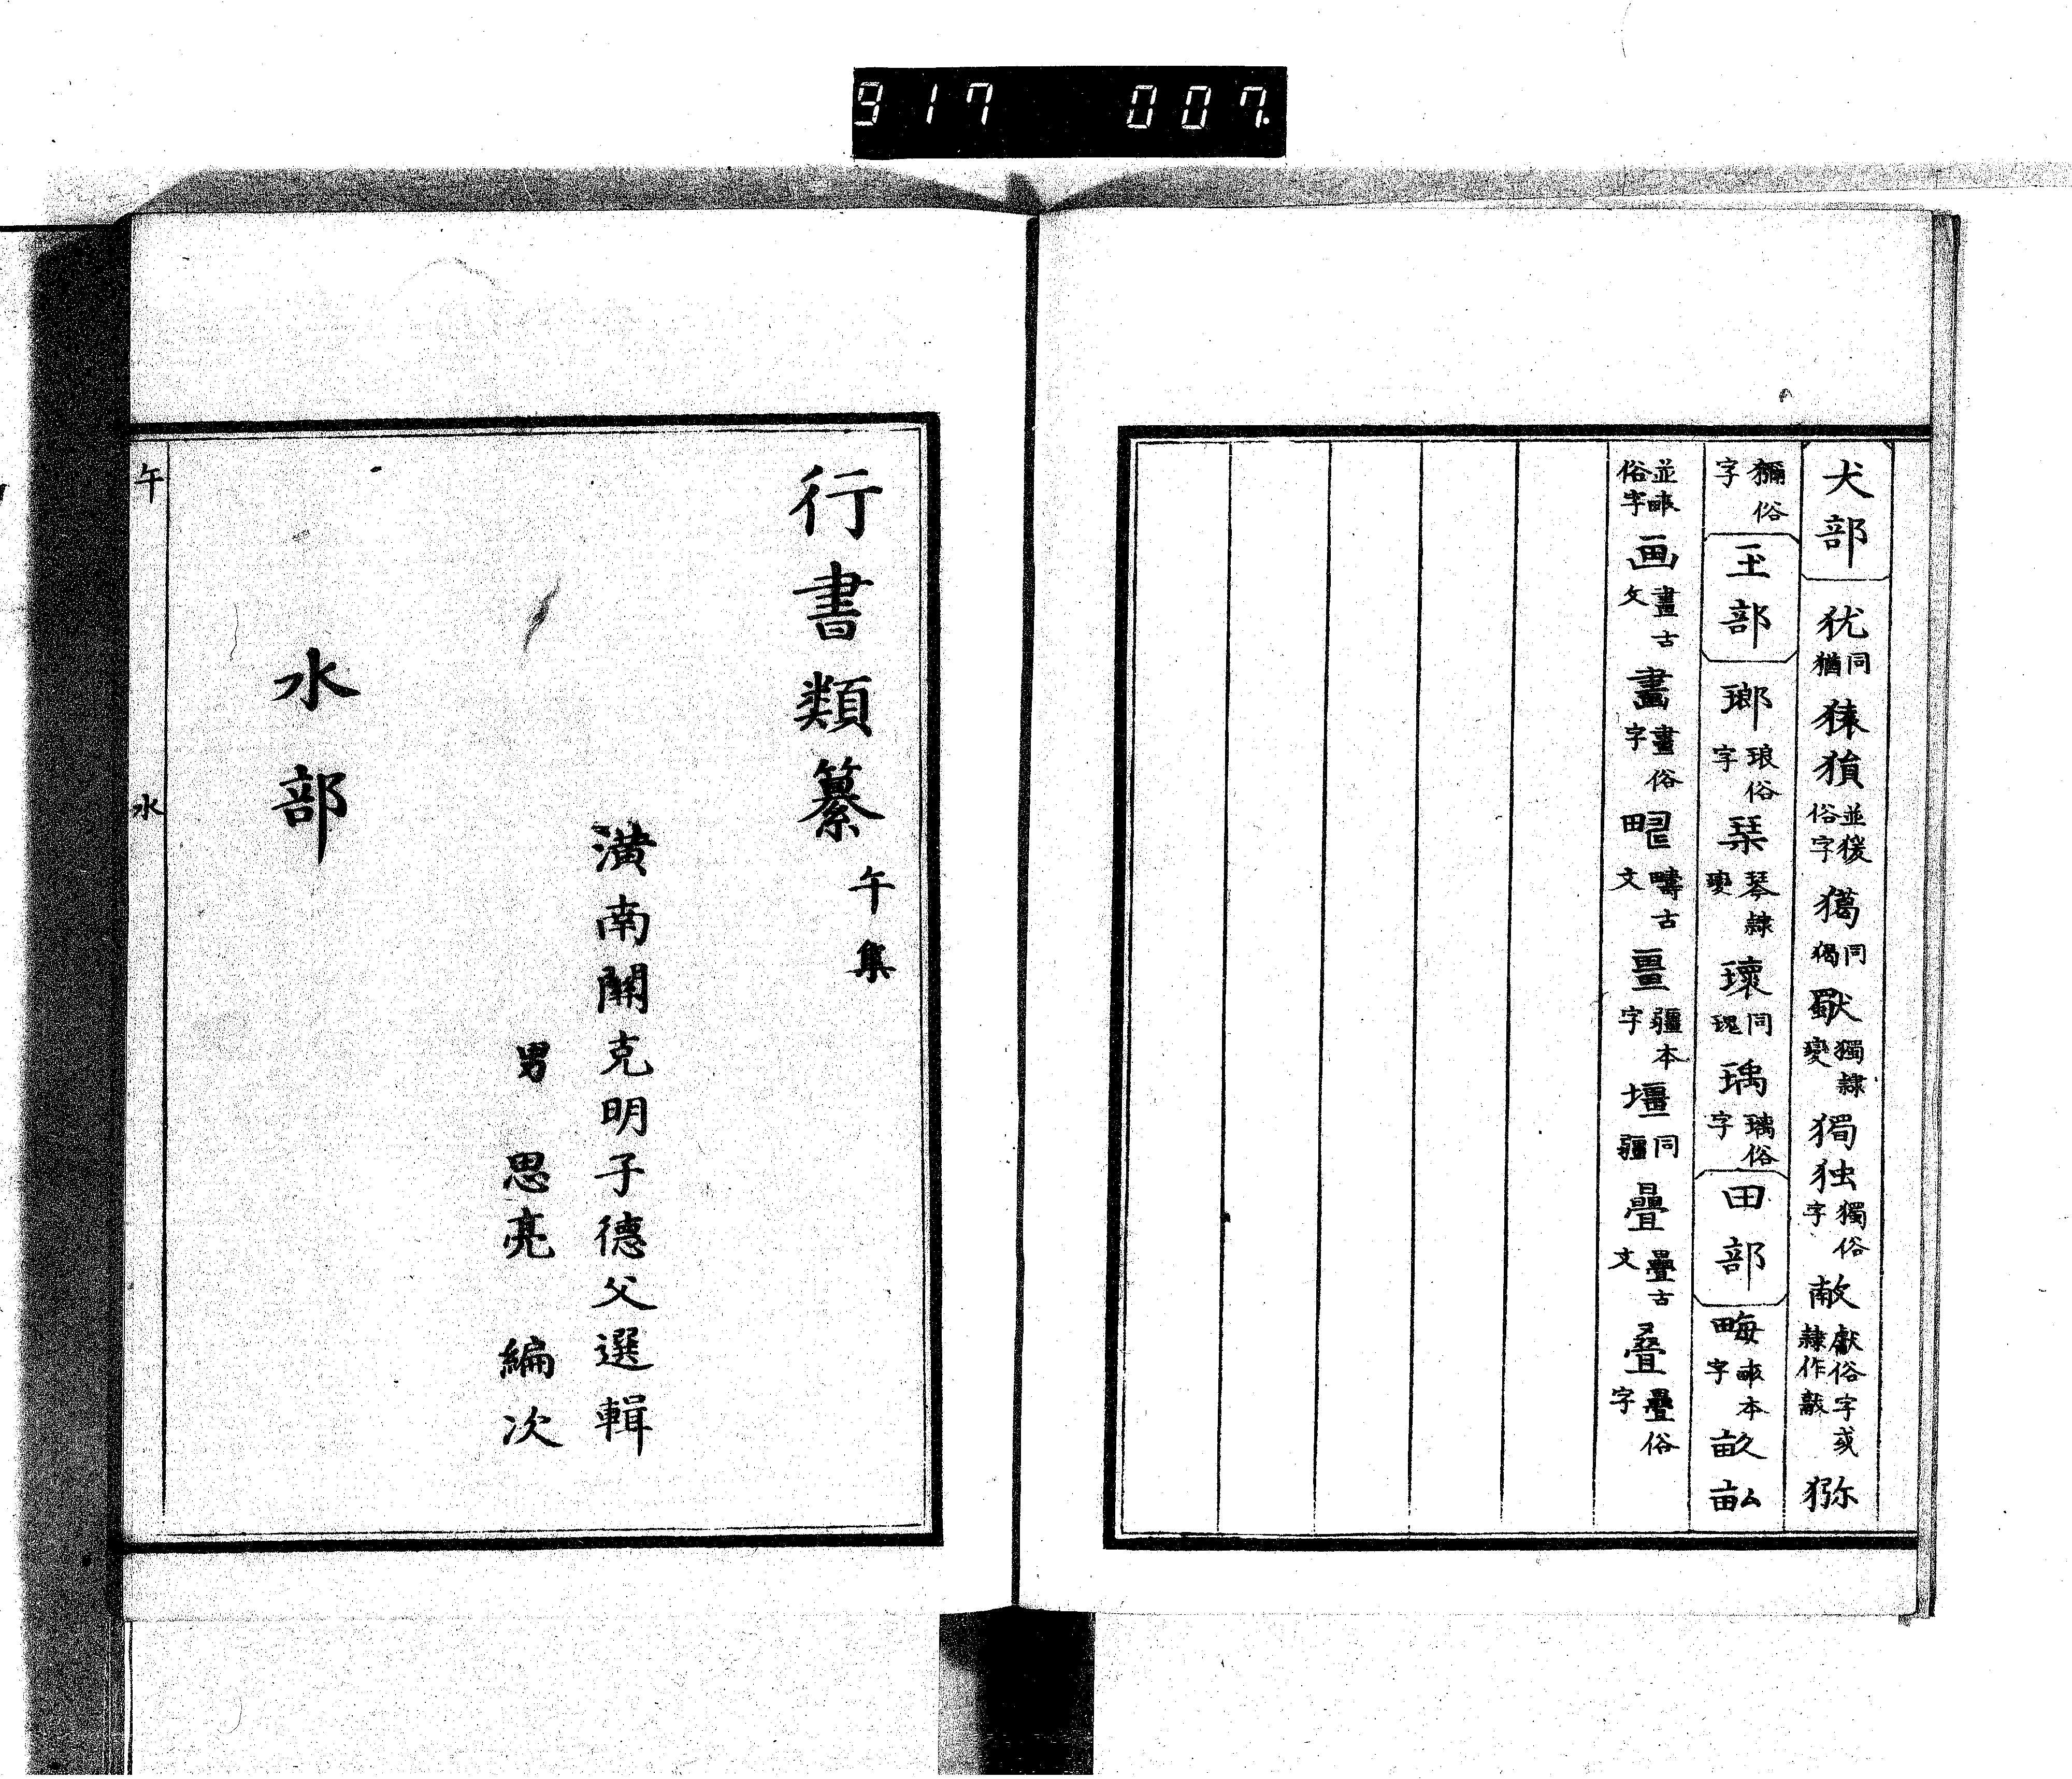 917 007
犬部 犹 同猶 猿 𤠔 並猨俗字 獦 同猲 獸 獨隸變 獨 独 獨俗字 献 獻俗字或隸作 猕
獼俗字 玉部 瑯 琅俗字 琹 琴隸變 瓌 同瑰 瑀 瑀俗字 田部 畮 畞本字 畝 畆
並畞俗字 画 畫古文 畵 畫俗字 疇古文 畺 疆本字 壃 同疆 疊 疊古文 叠 疊俗字
行書類纂 午集
潢南關克明子德父選輯
男 思亮 編次
水部
午 水